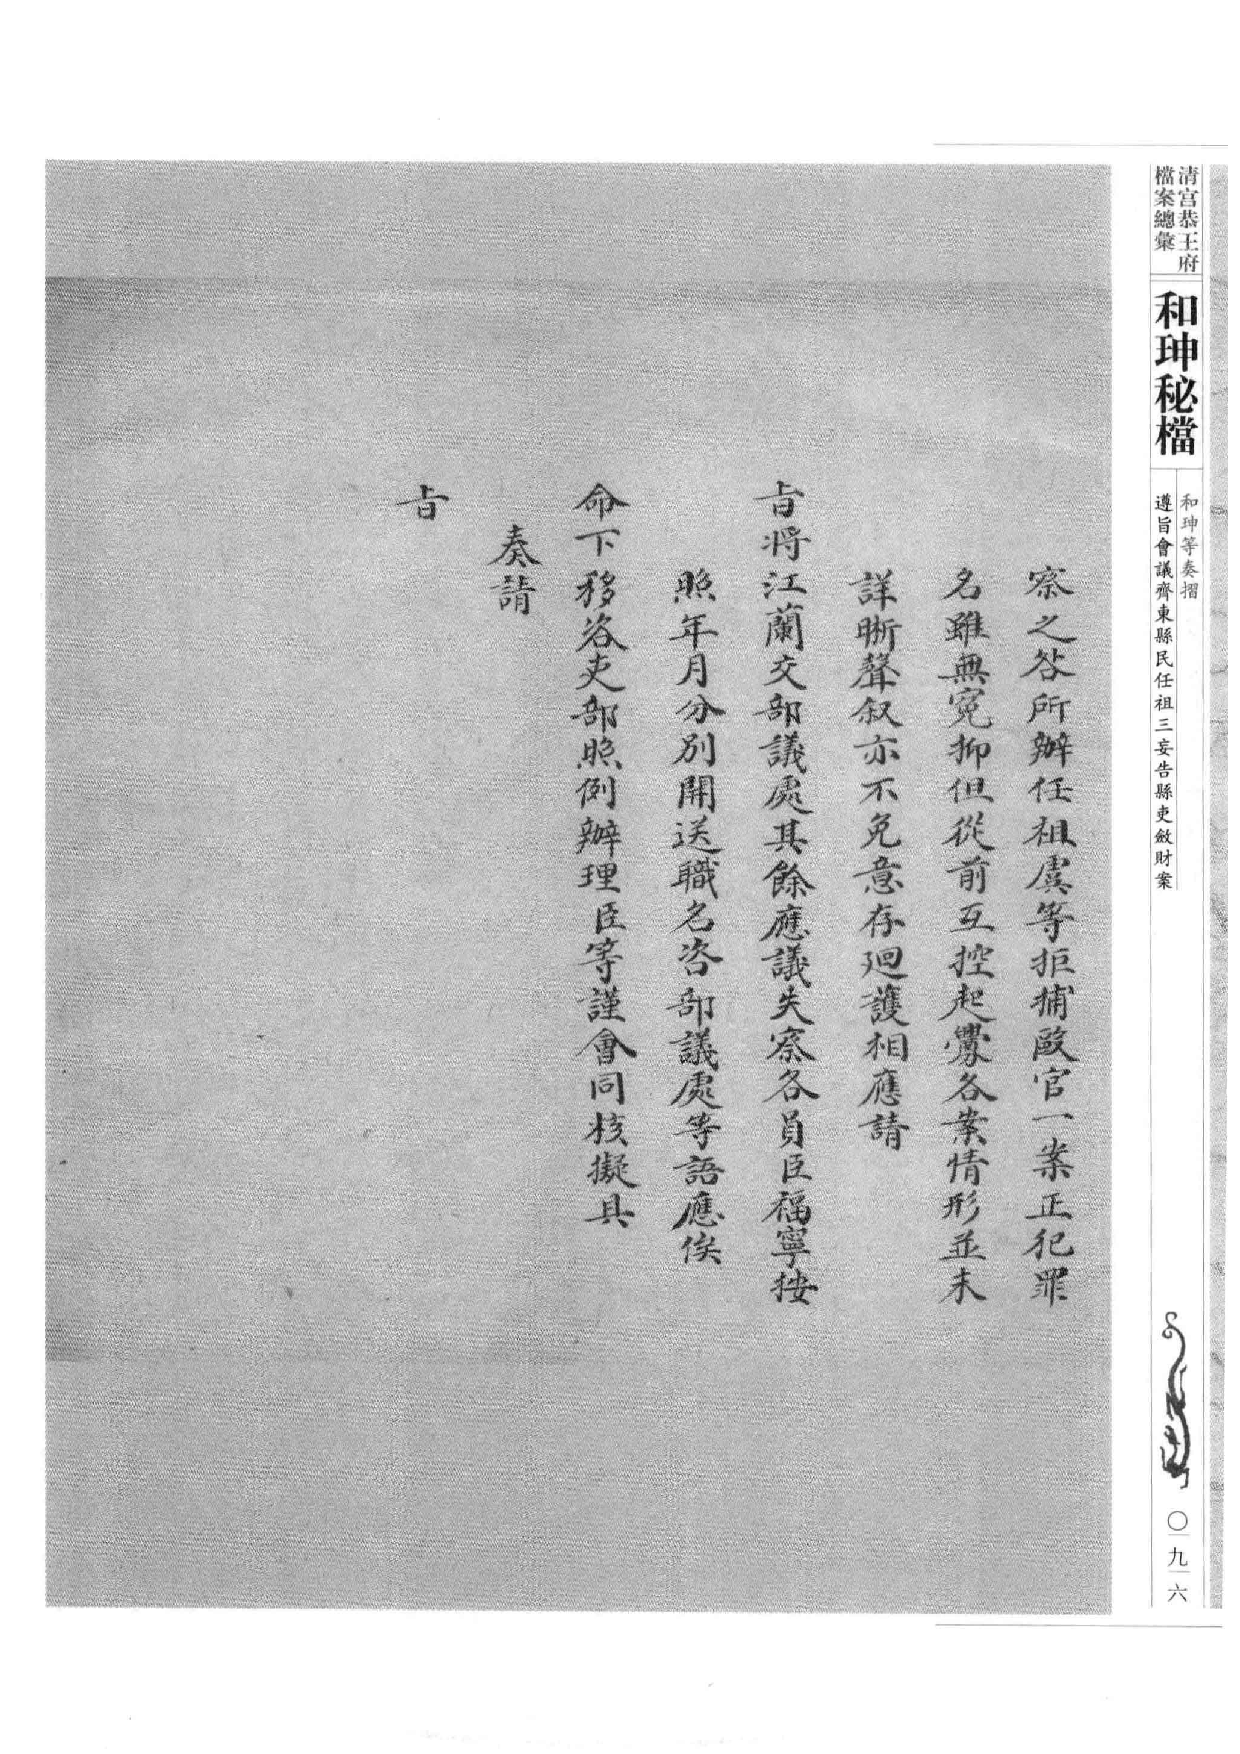 清宮恭王府
檔案總彙
和珅秘檔
和珅等奏摺
遵旨會議齊東縣民任祖三妄告縣吏斂財案
〇九六
察之咎所辦任祖虞等拒捕毆官一案正犯罪
名雖無冤抑但從前互控起釁各案情形並未
詳晰聲叙亦不免意存廻護相應請
旨將江蘭交部議處其餘應議失察各員臣福寧按
照年月分別開送職名咨部議處等語應俟
命下移咨吏部照例辦理臣等謹會同核擬具
奏請
旨